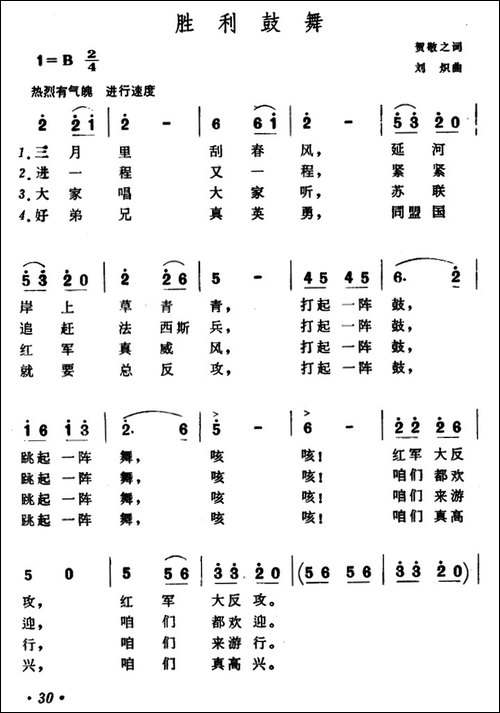 胜利鼓舞
1=B 2/4
贺敬之词
刘炽曲
热烈有气魄 进行速度
2 2 1 | 2 - | 6 6 1 | 2 - | 5 3 2 0 |
1.三月里 刮春风， 延河
2.进一程 又一程， 紧紧
3.大家唱 大家听， 苏联
4.好弟兄 真英勇， 同盟国
5 3 2 0 | 2 2 6 | 5 - | 4 5 4 5 | 6. 2 |
岸上草青青， 打起一阵鼓，
追赶法西斯兵， 打起一阵鼓，
红军真威风， 打起一阵鼓，
就要总反攻， 打起一阵鼓，
1 6 1 3 | 2. 6 | 5 - | 6 - | 2 2 2 6 |
跳起一阵舞， 咳 咳！ 红军大反
跳起一阵舞， 咳 咳！ 咱们都欢
跳起一阵舞， 咳 咳！ 咱们来游
跳起一阵舞， 咳 咳！ 咱们真高
5 0 | 5 5 6 | 3 3 2 0 | (5 6 5 6 | 3 3 2 0) |
攻， 红军大反攻。
迎， 咱们都欢迎。
行， 咱们来游行。
兴， 咱们真高兴。
·30·